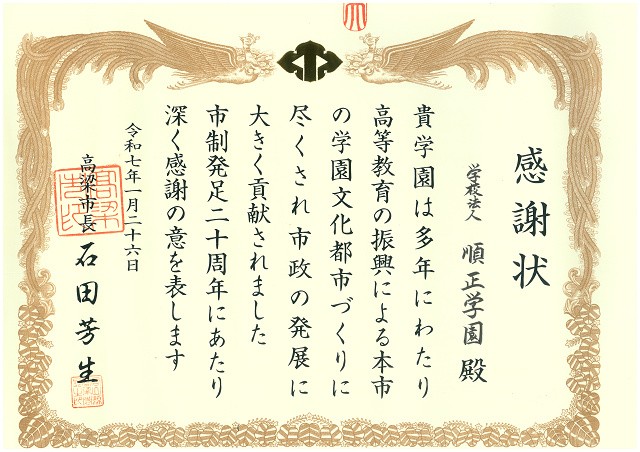 感謝状
学校法人 順正学園 殿
貴学園は多年にわたり
高等教育の振興による本市
の学園文化都市づくりに
尽くされ市政の発展に
大きく貢献されました
市制発足二十周年にあたり
深く感謝の意を表します
令和七年一月二十六日
高梁市長 石田芳生